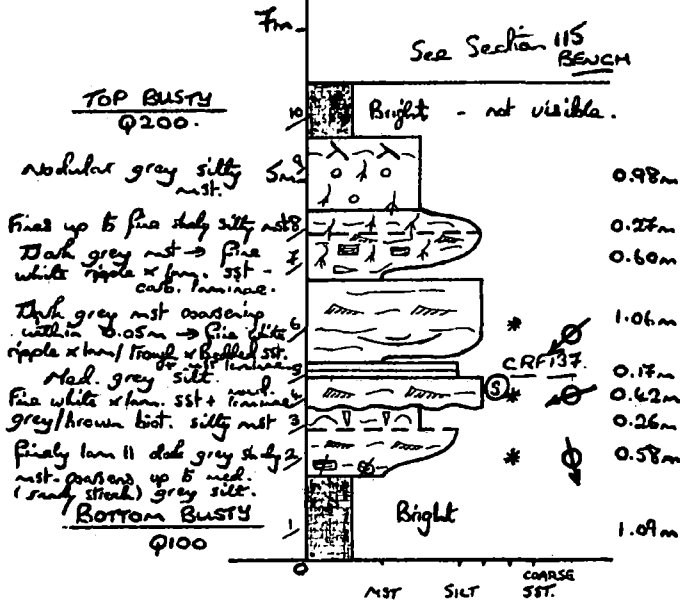 7m
See Section 115
BENCH
TOP BUSTY
Q200.
10
Bright - not visible.
Nodular grey silty
mst.
9
5m
0.98m
Fines up to fine shaly silty mst
8
0.27m
Dark grey mst → fine
white ripple x lam. sst -
carb. laminae.
7
0.60m
Dark grey mst coarsening
within 0.05m → fine white
ripple x lam/trough x bedded sst.
6
1.06m
CRF137.
Med. grey silt.
5
0.17m
Fine white x lam. sst + laminae
4
S
0.42m
grey/brown biot. silty mst
3
0.26m
finely lam || dark grey shaly
mst-coarsens up to med.
(sandy streak) grey silt.
2
0.58m
BOTTOM BUSTY
Q100
1
Bright
1.09m
0
MST SILT COARSE
SST.